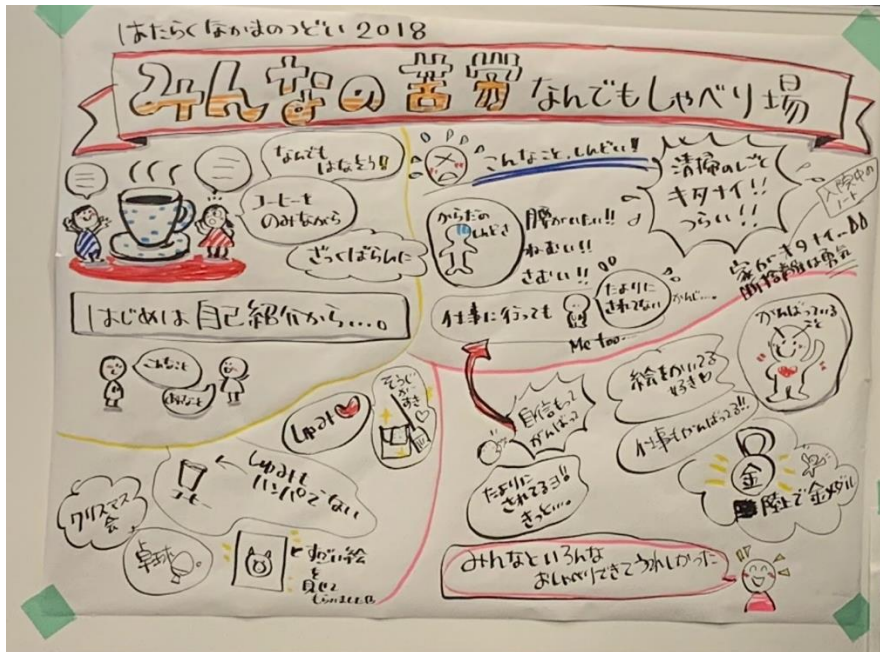 はたらくなかまのつどい 2018
みんなの苦労なんでもしゃべり場
なんでも
はなそう!!
コーヒーを
のみながら
ざっくばらんに
はじめは自己紹介から...。
こんなこと
あんなこと
こんなこと、しんどい!!
清掃のしごと
キタナイ!!
つらい!!
入院中の
ノート
からだの
しんどさ
腰がいたい!!
ねむい!!
さむい!!
家がキタナイ...
断捨離は勇気
仕事に行っても
たよりに
されてない
かんじ...。
Me too...
がんばっている
こと
絵をかいてる
好き
仕事もがんばってる!!
自信もって
がんばって
たよりに
されてるヨ!!
きっと...。
金
陸上で金メダル
しゅみ
そうじ
が
すき
しゅみも
ハンパでない
コーヒー
クリスマス
会
卓球
すごい絵
を
見せて
もらいました
みんなといろんな
おしゃべりできてうれしかった